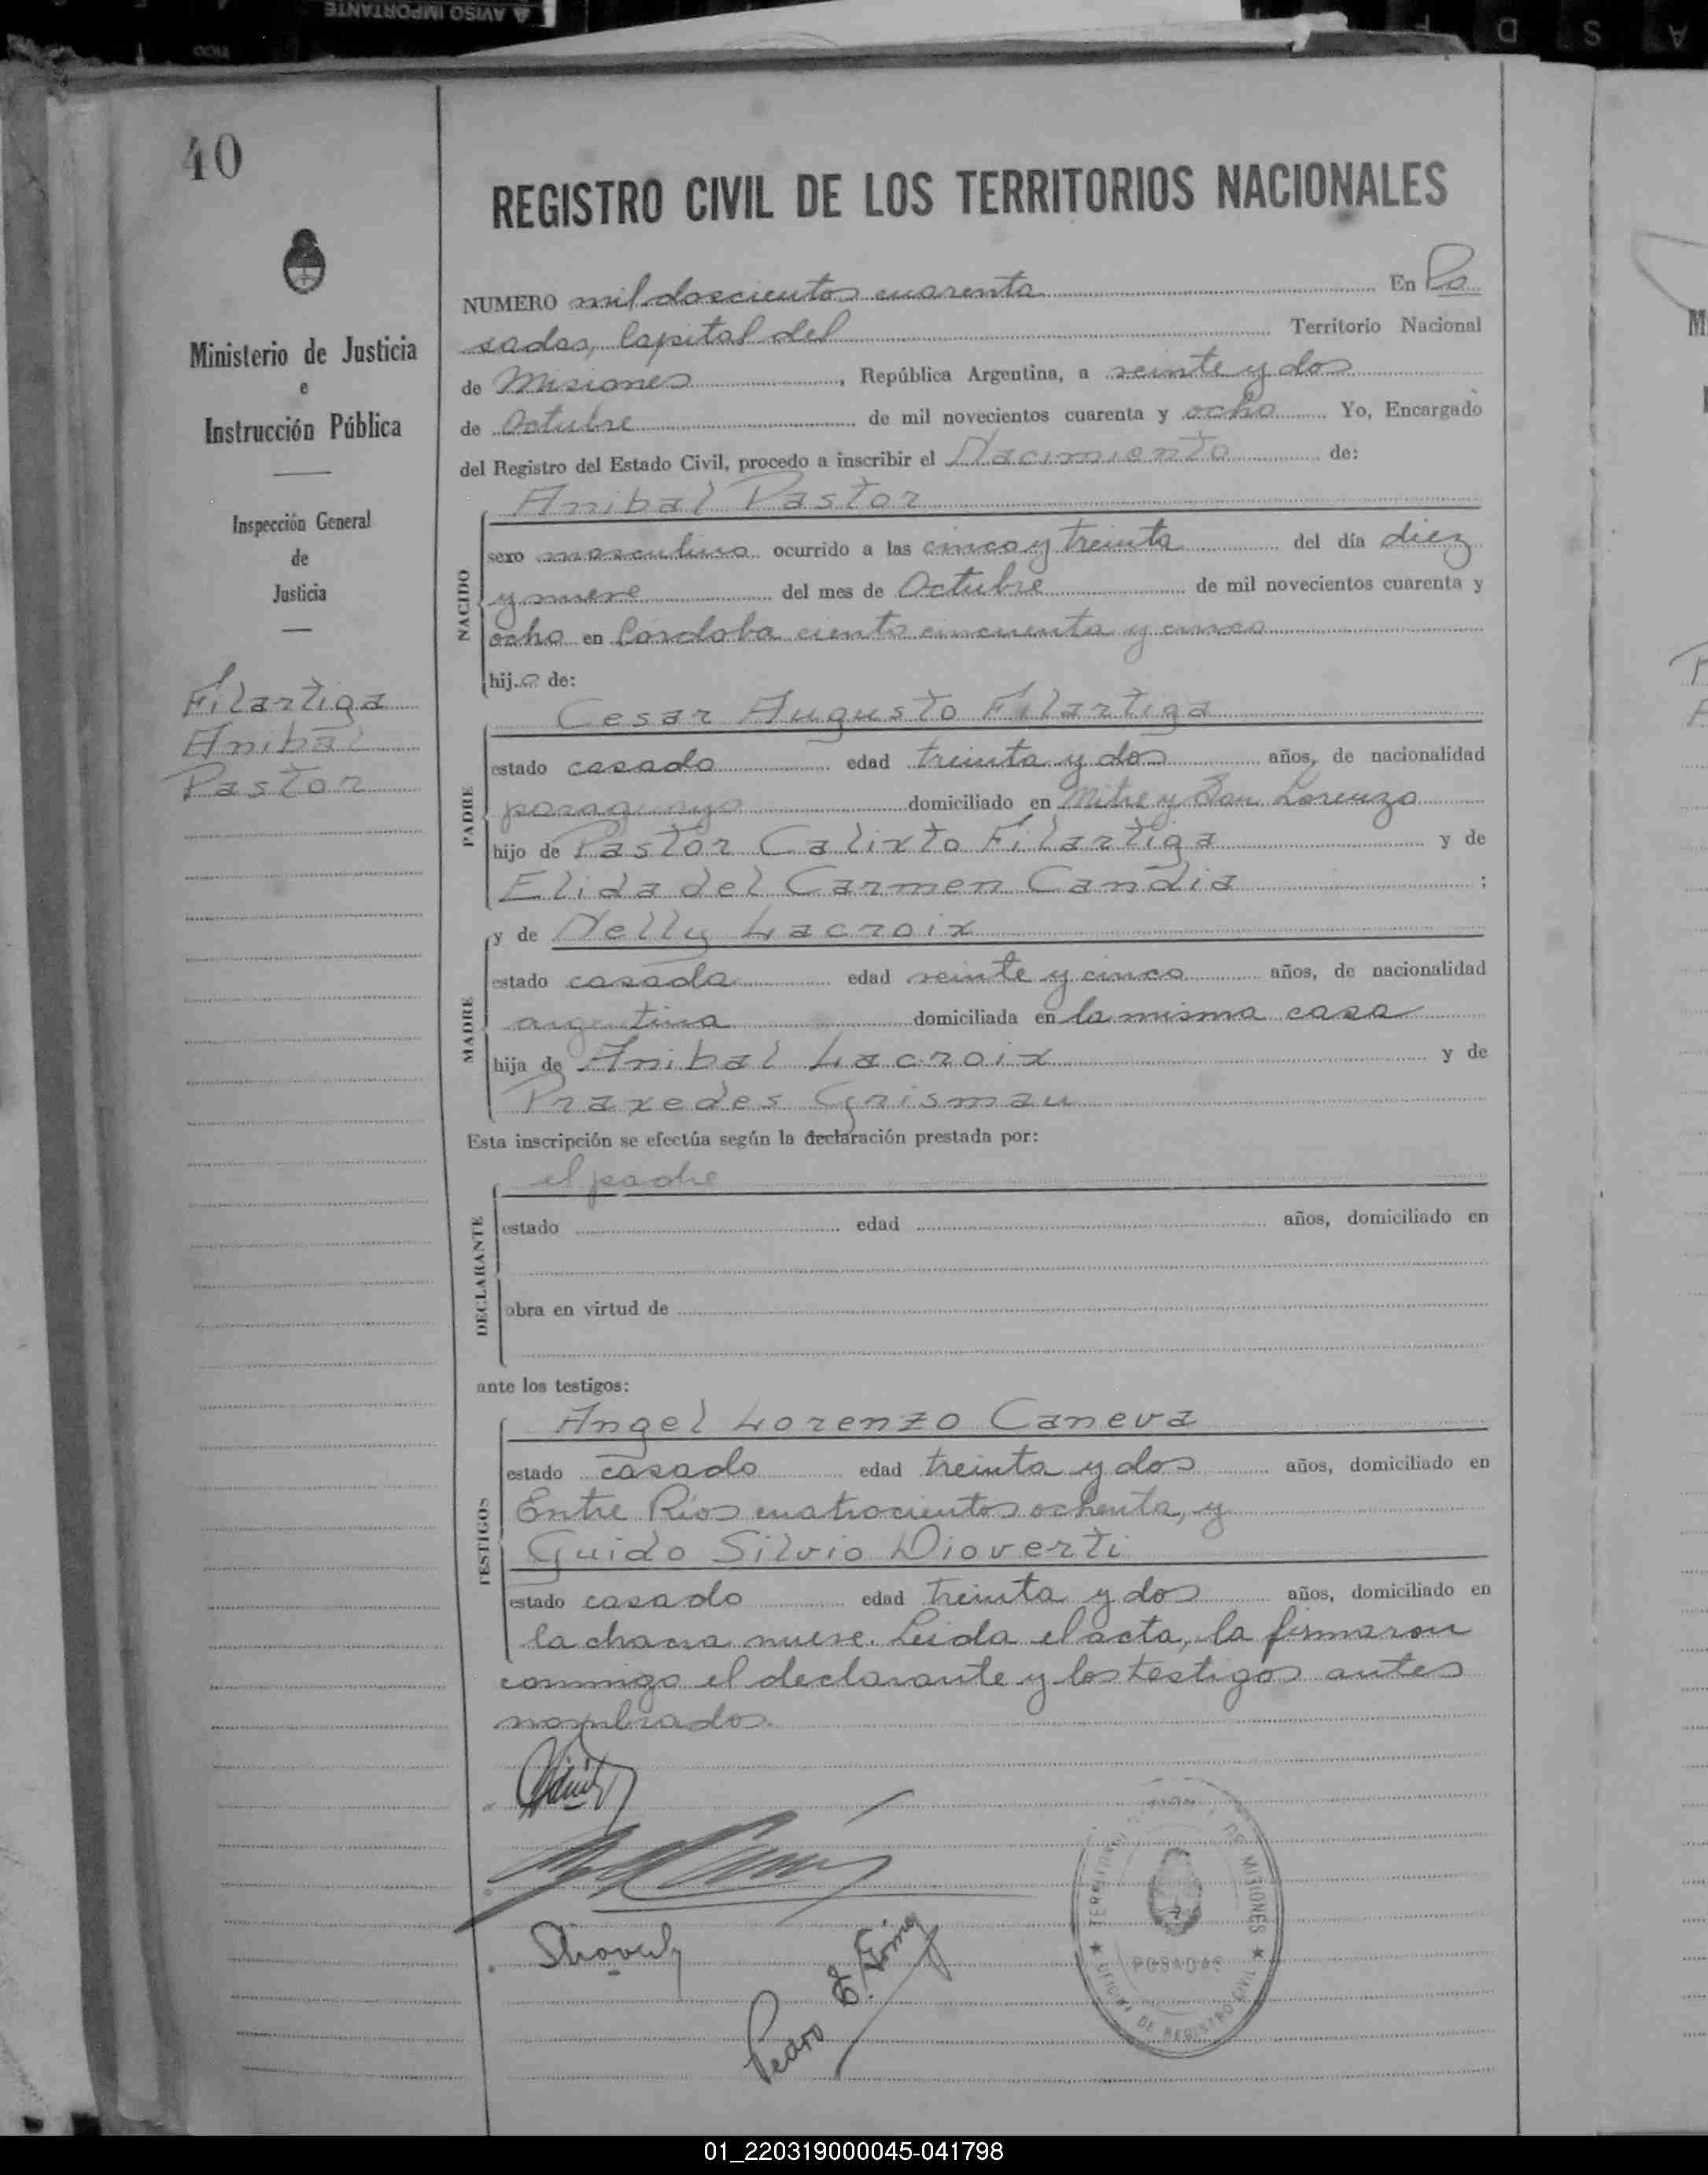 AVISO IMPORTANTE
40
REGISTRO CIVIL DE LOS TERRITORIOS NACIONALES
Ministerio de Justicia
e
Instrucción Pública
Inspección General
de
Justicia
Filartiga
Anibal
Pastor
NUMERO mil doscientos cuarenta En Po
sadas, Capital del Territorio Nacional
de Misiones, República Argentina, a veinte y dos
de Octubre de mil novecientos cuarenta y ocho Yo, Encargado
del Registro del Estado Civil, procedo a inscribir el Nacimiento de:
Anibal Pastor
NACIDO
sexo masculino ocurrido a las cinco y treinta del día diez
y nueve del mes de Octubre de mil novecientos cuarenta y
ocho en Córdoba ciento cincuenta y cinco
hijo de:
Cesar Augusto Filartiga
PADRE
estado casado edad treinta y dos años, de nacionalidad
paraguayo domiciliado en Mitre y San Lorenzo
hijo de Pastor Calixto Filartiga y de
Elida del Carmen Candia ;
y de Nelly Lacroix
MADRE
estado casada edad veinte y cinco años, de nacionalidad
argentina domiciliada en la misma casa
hija de Anibal Lacroix y de
Praxedes Grismau
Esta inscripción se efectúa según la declaración prestada por:
el padre
DECLARANTE
estado edad años, domiciliado en
obra en virtud de
ante los testigos:
Angel Lorenzo Caneva
TESTIGOS
estado casado edad treinta y dos años, domiciliado en
Entre Ríos cuatrocientos ochenta, y
Guido Silvio Dioverti
estado casado edad treinta y dos años, domiciliado en
la chacra nueve. Leida el acta, la firmaron
conmigo el declarante y los testigos antes
nombrados.
Pedro E. Gómez
TERRITORIO DE MISIONES
POSADAS
OFICINA DE REGISTRO CIVIL
01_220319000045-041798